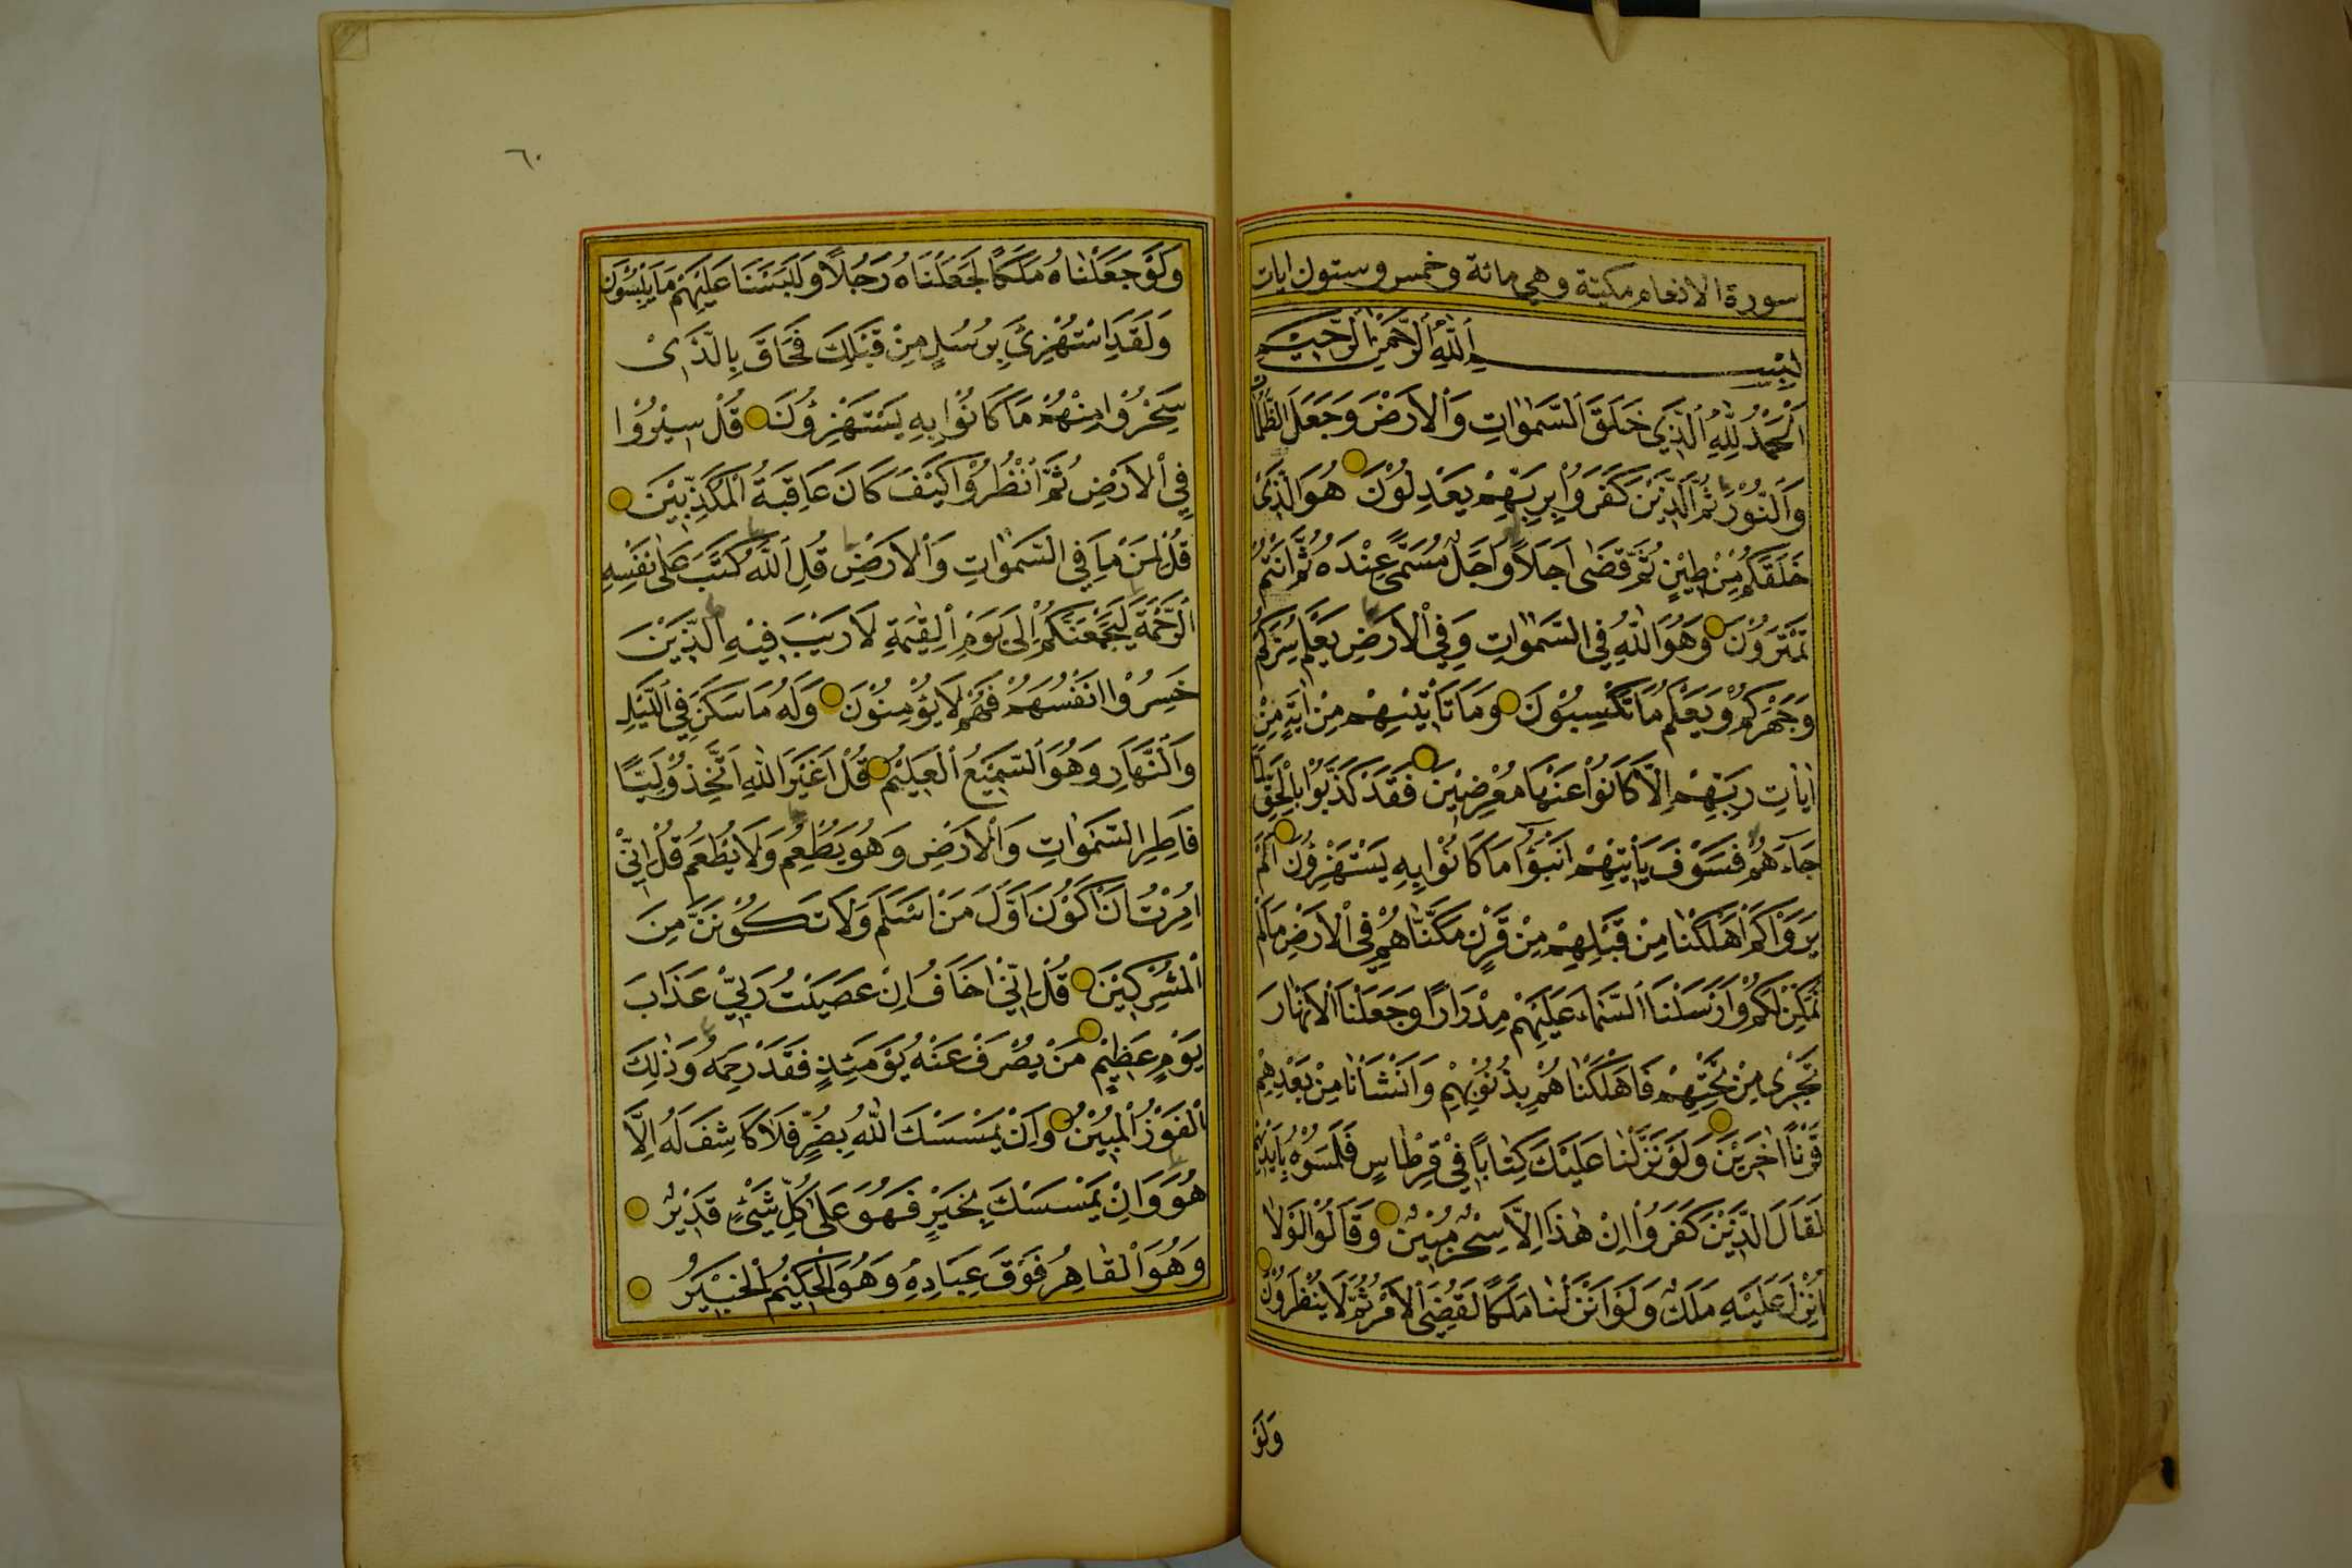 سورة الانعام مكيتة وهي مائة وخمس وستون ايات
بِسْمِ اللّٰهِ الرَّحْمٰنِ الرَّحِيْمِ
اَلْحَمْدُ لِلّٰهِ الَّذِيْ خَلَقَ السَّمٰوَاتِ وَالْاَرْضَ وَجَعَلَ الظُّلُمَاتِ
وَالنُّوْرَ ثُمَّ الَّذِيْنَ كَفَرُوْا بِرَبِّهِمْ يَعْدِلُوْنَ هُوَ الَّذِيْ
خَلَقَكُمْ مِنْ طِيْنٍ ثُمَّ قَضٰى اَجَلاً وَاَجَلٌ مُسَمًّى عِنْدَهُ ثُمَّ اَنْتُمْ
تَمْتَرُوْنَ وَهُوَ اللّٰهُ فِي السَّمٰوَاتِ وَفِي الْاَرْضِ يَعْلَمُ سِرَّكُمْ
وَجَهْرَكُمْ وَيَعْلَمُ مَا تَكْسِبُوْنَ وَمَا تَأْتِيْهِمْ مِنْ اٰيَةٍ مِنْ
اٰيَاتِ رَبِّهِمْ اِلَّا كَانُوْا عَنْهَا مُعْرِضِيْنَ فَقَدْ كَذَّبُوْا بِالْحَقِّ لَمَّا
جَاءَهُمْ فَسَوْفَ يَأْتِيْهِمْ اَنْبٰؤُا مَا كَانُوْا بِهِ يَسْتَهْزِؤُنَ اَلَمْ
يَرَوْا كَمْ اَهْلَكْنَا مِنْ قَبْلِهِمْ مِنْ قَرْنٍ مَكَّنَّاهُمْ فِي الْاَرْضِ مَا لَمْ
نُمَكِّنْ لَكُمْ وَاَرْسَلْنَا السَّمَاءَ عَلَيْهِمْ مِدْرَارًا وَجَعَلْنَا الْاَنْهَارَ
تَجْرِى مِنْ تَحْتِهِمْ فَاَهْلَكْنَاهُمْ بِذُنُوْبِهِمْ وَاَنْشَأْنَا مِنْ بَعْدِهِمْ
قَرْنًا اٰخَرِيْنَ وَلَوْ نَزَّلْنَا عَلَيْكَ كِتَابًا فِيْ قِرْطَاسٍ فَلَمَسُوْهُ بِاَيْدِيْهِمْ
لَقَالَ الَّذِيْنَ كَفَرُوْا اِنْ هٰذَا اِلَّا سِحْرٌ مُبِيْنٌ وَقَالُوْا لَوْلَا
اُنْزِلَ عَلَيْهِ مَلَكٌ وَلَوْ اَنْزَلْنَا مَلَكًا لَقُضِيَ الْاَمْرُ ثُمَّ لَا يُنْظَرُوْنَ
وَلَوْ
٦٠
وَلَوْ جَعَلْنَاهُ مَلَكًا لَجَعَلْنَاهُ رَجُلًا وَلَلَبَسْنَا عَلَيْهِمْ مَا يَلْبِسُوْنَ
وَلَقَدِ اسْتُهْزِئَ بِرُسُلٍ مِنْ قَبْلِكَ فَحَاقَ بِالَّذِيْ
سَخِرُوْا مِنْهُمْ مَا كَانُوْا بِهِ يَسْتَهْزِؤُنَ قُلْ سِيْرُوْا
فِي الْاَرْضِ ثُمَّ انْظُرُوْا كَيْفَ كَانَ عَاقِبَةُ الْمُكَذِّبِيْنَ
قُلْ لِمَنْ مَا فِي السَّمٰوَاتِ وَالْاَرْضِ قُلِ اللّٰهُ كَتَبَ عَلٰى نَفْسِهِ
الرَّحْمَةَ لَيَجْمَعَنَّكُمْ اِلٰى يَوْمِ الْقِيٰمَةِ لَا رَيْبَ فِيْهِ الَّذِيْنَ
خَسِرُوْا اَنْفُسَهُمْ فَهُمْ لَا يُؤْمِنُوْنَ وَلَهُ مَا سَكَنَ فِي الَّيْلِ
وَالنَّهَارِ وَهُوَ السَّمِيْعُ الْعَلِيْمُ قُلْ اَغَيْرَ اللّٰهِ اَتَّخِذُ وَلِيًّا
فَاطِرِ السَّمٰوَاتِ وَالْاَرْضِ وَهُوَ يُطْعِمُ وَلَا يُطْعَمُ قُلْ اِنِّيْ
اُمِرْتُ اَنْ اَكُوْنَ اَوَّلَ مَنْ اَسْلَمَ وَلَا تَكُوْنَنَّ مِنَ
الْمُشْرِكِيْنَ قُلْ اِنِّيْ اَخَافُ اِنْ عَصَيْتُ رَبِّيْ عَذَابَ
يَوْمٍ عَظِيْمٍ مَنْ يُصْرَفْ عَنْهُ يَوْمَئِذٍ فَقَدْ رَحِمَهُ وَذٰلِكَ
الْفَوْزُ الْمُبِيْنُ وَاِنْ يَمْسَسْكَ اللّٰهُ بِضُرٍّ فَلَا كَاشِفَ لَهُ اِلَّا
هُوَ وَاِنْ يَمْسَسْكَ بِخَيْرٍ فَهُوَ عَلٰى كُلِّ شَيْءٍ قَدِيْرٌ
وَهُوَ الْقَاهِرُ فَوْقَ عِبَادِهِ وَهُوَ الْحَكِيْمُ الْخَبِيْرُ